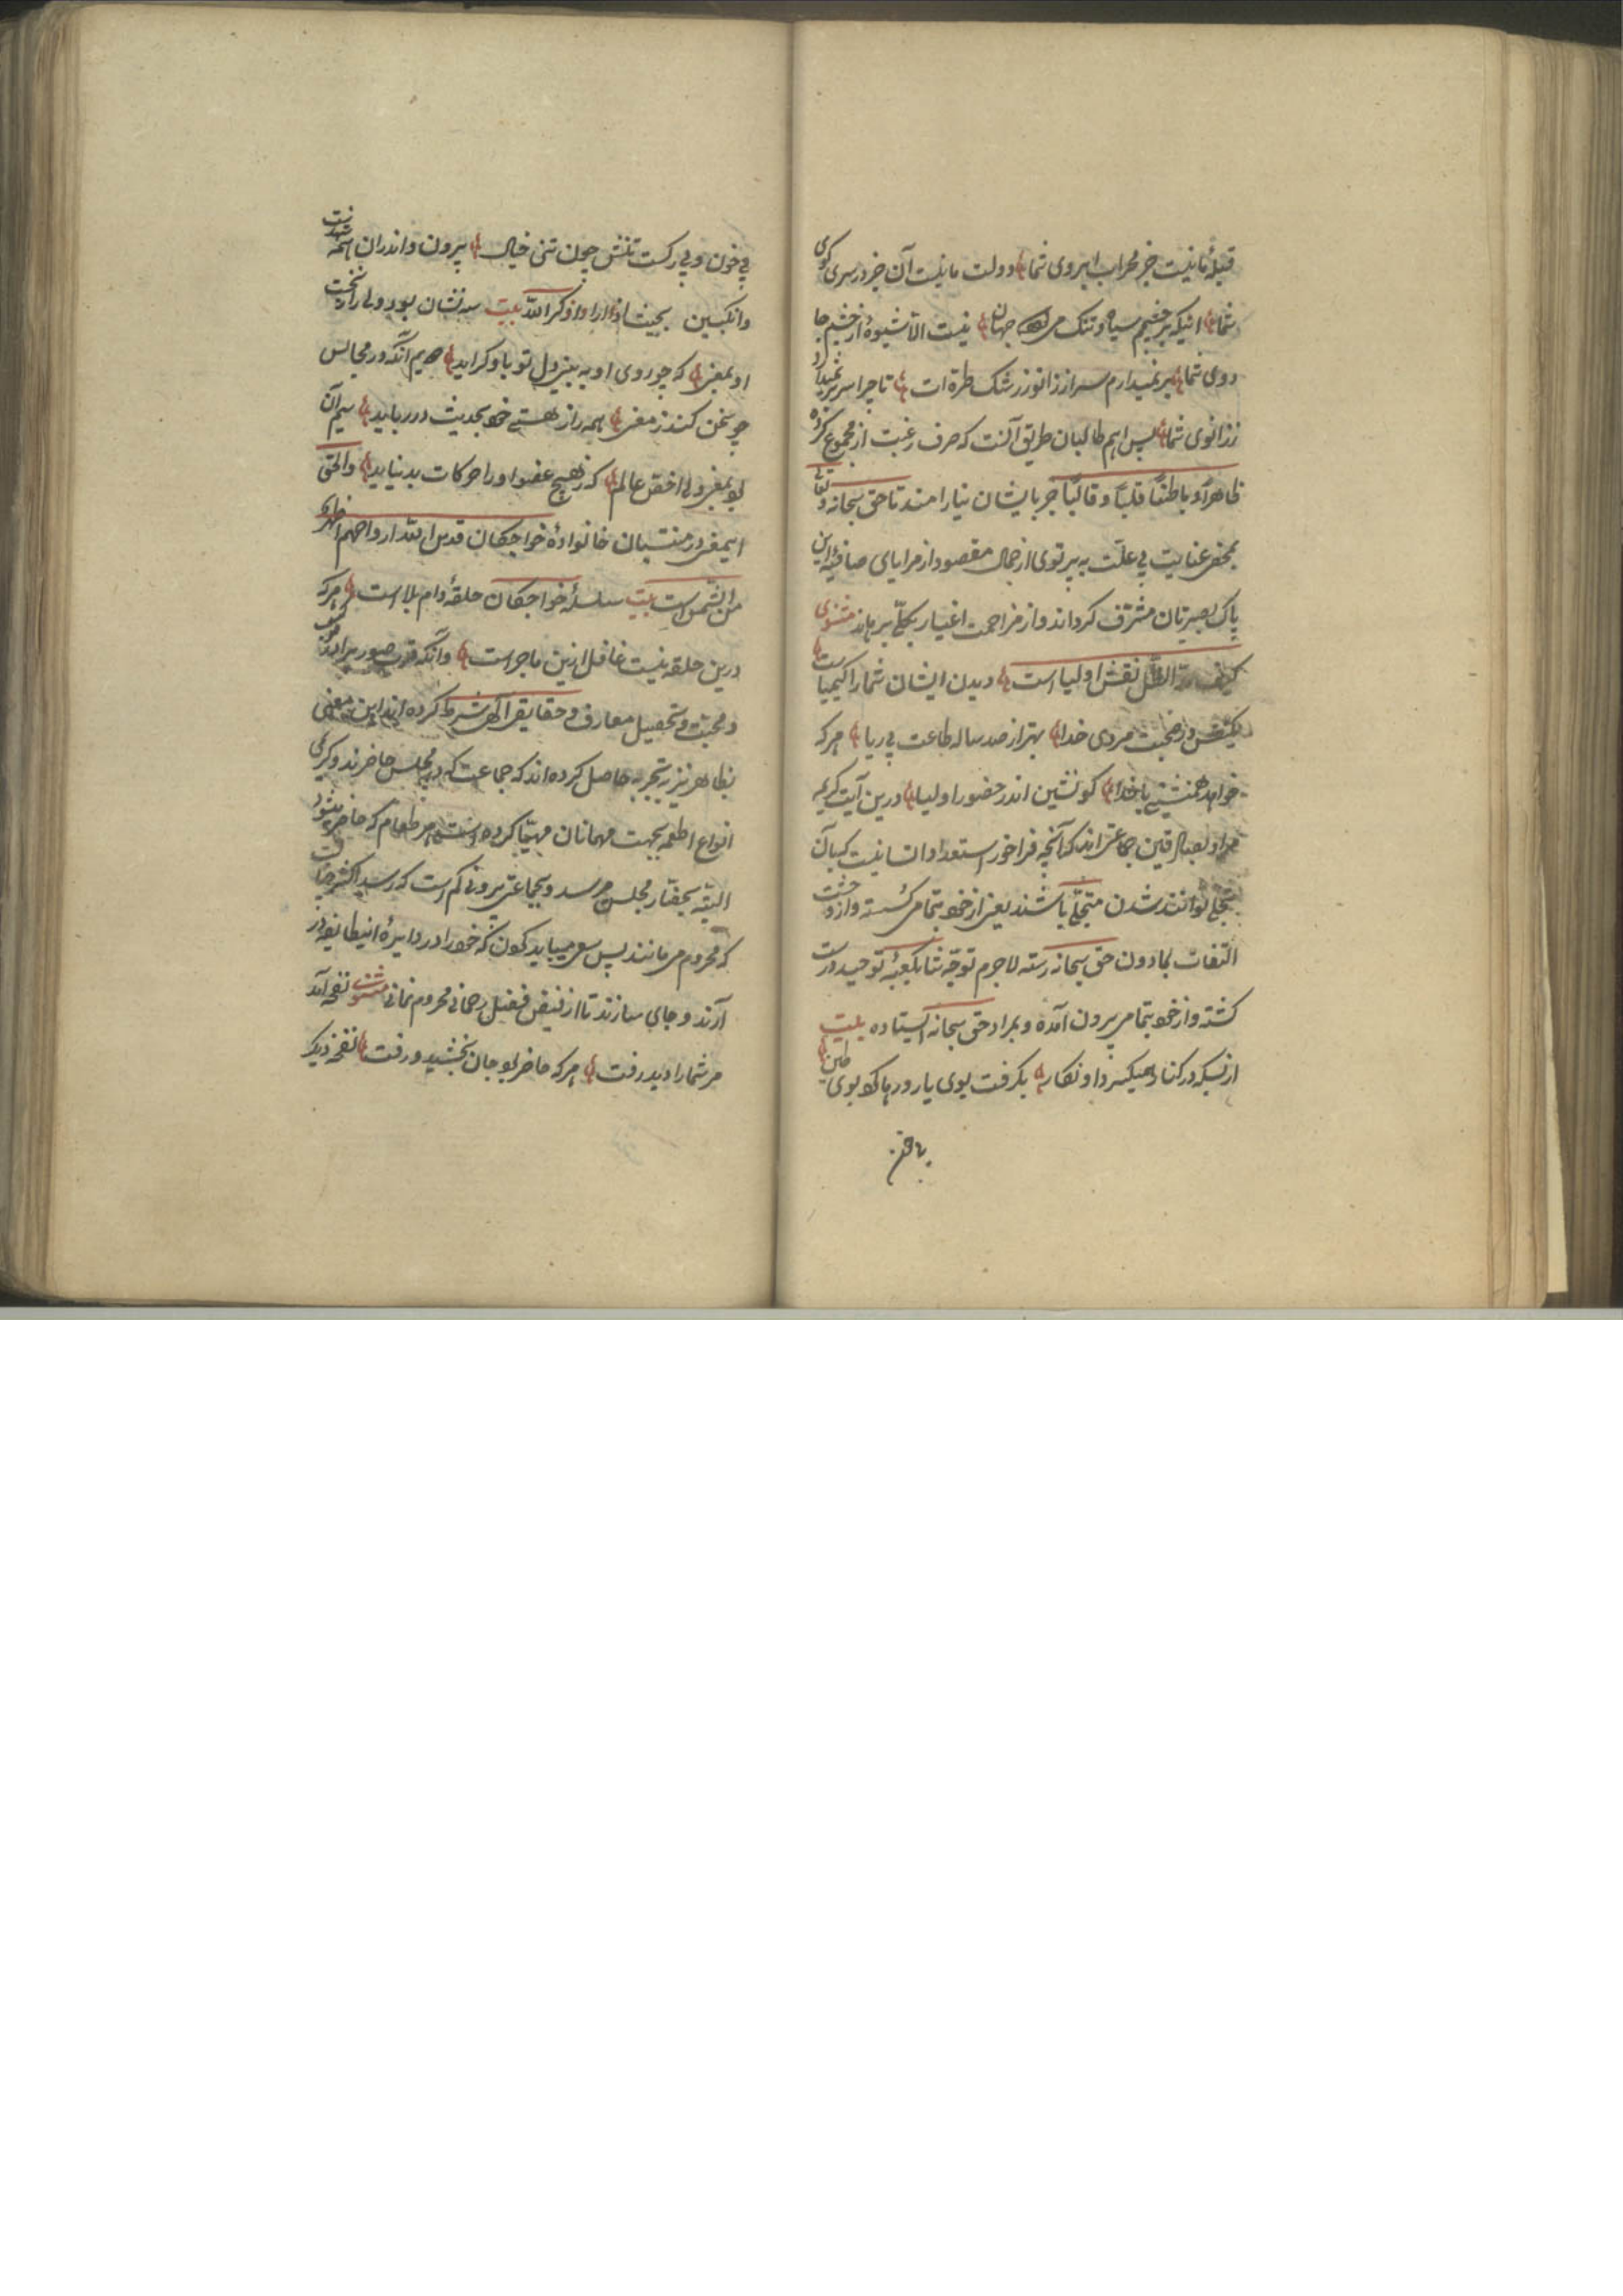 قبلهٔ ما نیست جز محراب ابروی شما دولت ما نیست آن جز در سری کوی
شما اینکه بر چشمم سیاه و تنک می جهان نیست الا شیوهٔ از چشم جا
دوی شما بر نمیدارم سر از زانو ز رشک طرّه ات تا چرا سر بر نمیدارد
ز زانوی شما پس اهم طالبان طریق آنست که صرف رغبت از مجموع کرده
ظاهراً و باطناً قلباً و قالباً جز با یشان نیارامند تا حق سبحانه و تعا
بمحض عنایت بی علّت به پرتوی از جمال مقصود از مرایای صافیهٔ این
پاک بصیرتان مشرّف کرداند و از مزاحمت اغیار بکلّی برهاند مثنوی
کیف مدّ الظّل نقش اولیا است دیدن ایشان شما را کیمیاست
یکنفس در صحبت مردی خدا بهتر از صد ساله طاعت بی ریا هر که
خواهد همنشینی با خدا کو نشین اندر حضور اولیا درین آیت کریمه
مراد بصادقین جماعتی اند که آنچه فراخور استعداد انسانیت کبآن
متجلّی توانند شدن متجلّی باشند یعنی از خود بتمامی کسسته و از و حشت
التفات بمادون حق سبحانه رسته لاجرم توجّه شان بکعبهٔ توحید درست
کشته و از خود بتمامی بیرون آمده و بمراد حق سبحانه ایستاده بیت
از بسکه در کنار همیکیرد او نکار بکرفت بوی یار و رها کرد بوی طین
بی خون و بی رکست تنش چون تنی خیال بیرون و اندران همه شهدست
و انکبین بحیث اذا راوا ذکر الله بیت سه نشان بود ولی را نخست
او بمعنی که چو روی او به بینی دل تو باو کراید دویم آنکه در مجالس
چو سخن کند ز معنی همه را ز هستی خود بحدیث در رباید سیم آن
بود بمعنی ولی اخصّ عالم که ز هیچ عضو او را حرکات بد نیاید و الحق
اینمعنی در منتسبان خانوادهٔ خواجکان قدس الله ارواحهم اظهر
من الشمس است بیت سلسلهٔ خواجکان حلقهٔ دام بلاست هر که
درین حلقه نیست غافل ازین ماجراست و آنکه قرب صوری را در
و محبّت و تحصیل معارف و حقایق الهی شرط کرده اند این معنی
بظاهر نیز بتجربه حاصل کرده اند که جماعت که در مجلس حاضرند و کریمی
انواع اطعمه بجهت مهمانان مهیّا کرده است هر طعام که حاضر میشود
البتّه بحضّار مجلس میرسد و بجماعتی بیرونی کم است که رسید اکثر
که محروم می مانند پس سعی میباید کردن که خود را در دایرهٔ اینطایفه در
آرند و جای سازند تا از فیض فضل رحمانی محروم نمانی مثنوی نفحه آمد
مر شما را دید و رفت هر که حاضر بود جان بخشید و رفت نفحه دیکر